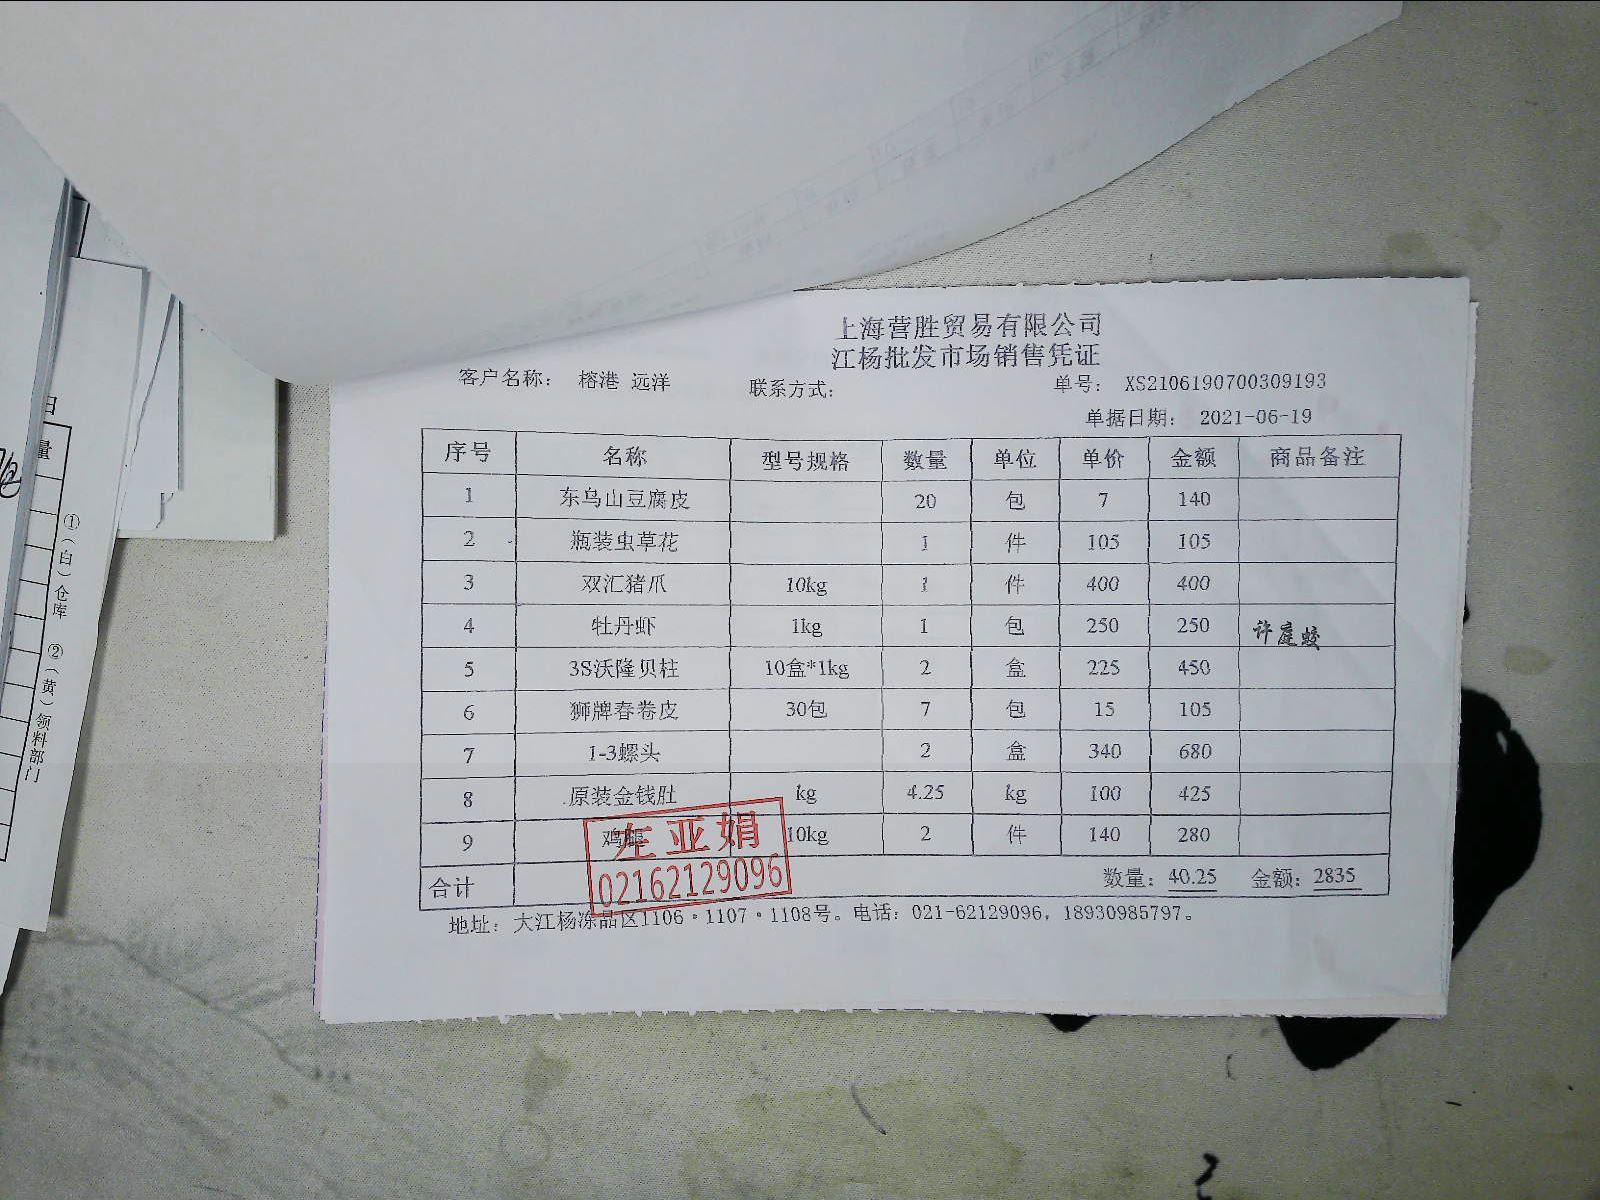 上海营胜贸易有限公司
江杨批发市场销售凭证
客户名称： 榕港 远洋 联系方式： 单号： XS2106190700309193
单据日期： 2021-06-19
序号 名称 型号规格 数量 单位 单价 金额 商品备注
1 东乌山豆腐皮 20 包 7 140
2 瓶装虫草花 1 件 105 105
3 双汇猪爪 10kg 1 件 400 400
4 牡丹虾 1kg 1 包 250 250 许庭蛟
5 3S沃隆贝柱 10盒*1kg 2 盒 225 450
6 狮牌春卷皮 30包 7 包 15 105
7 1-3螺头 2 盒 340 680
8 原装金钱肚 kg 4.25 kg 100 425
9 鸡腿 10kg 2 件 140 280
左亚娟
02162129096
合计 数量：40.25 金额：2835
地址： 大江杨冻品区1106·1107·1108号。电话：021-62129096，18930985797。
日
量
①(白)仓库 ②(黄)领料部门